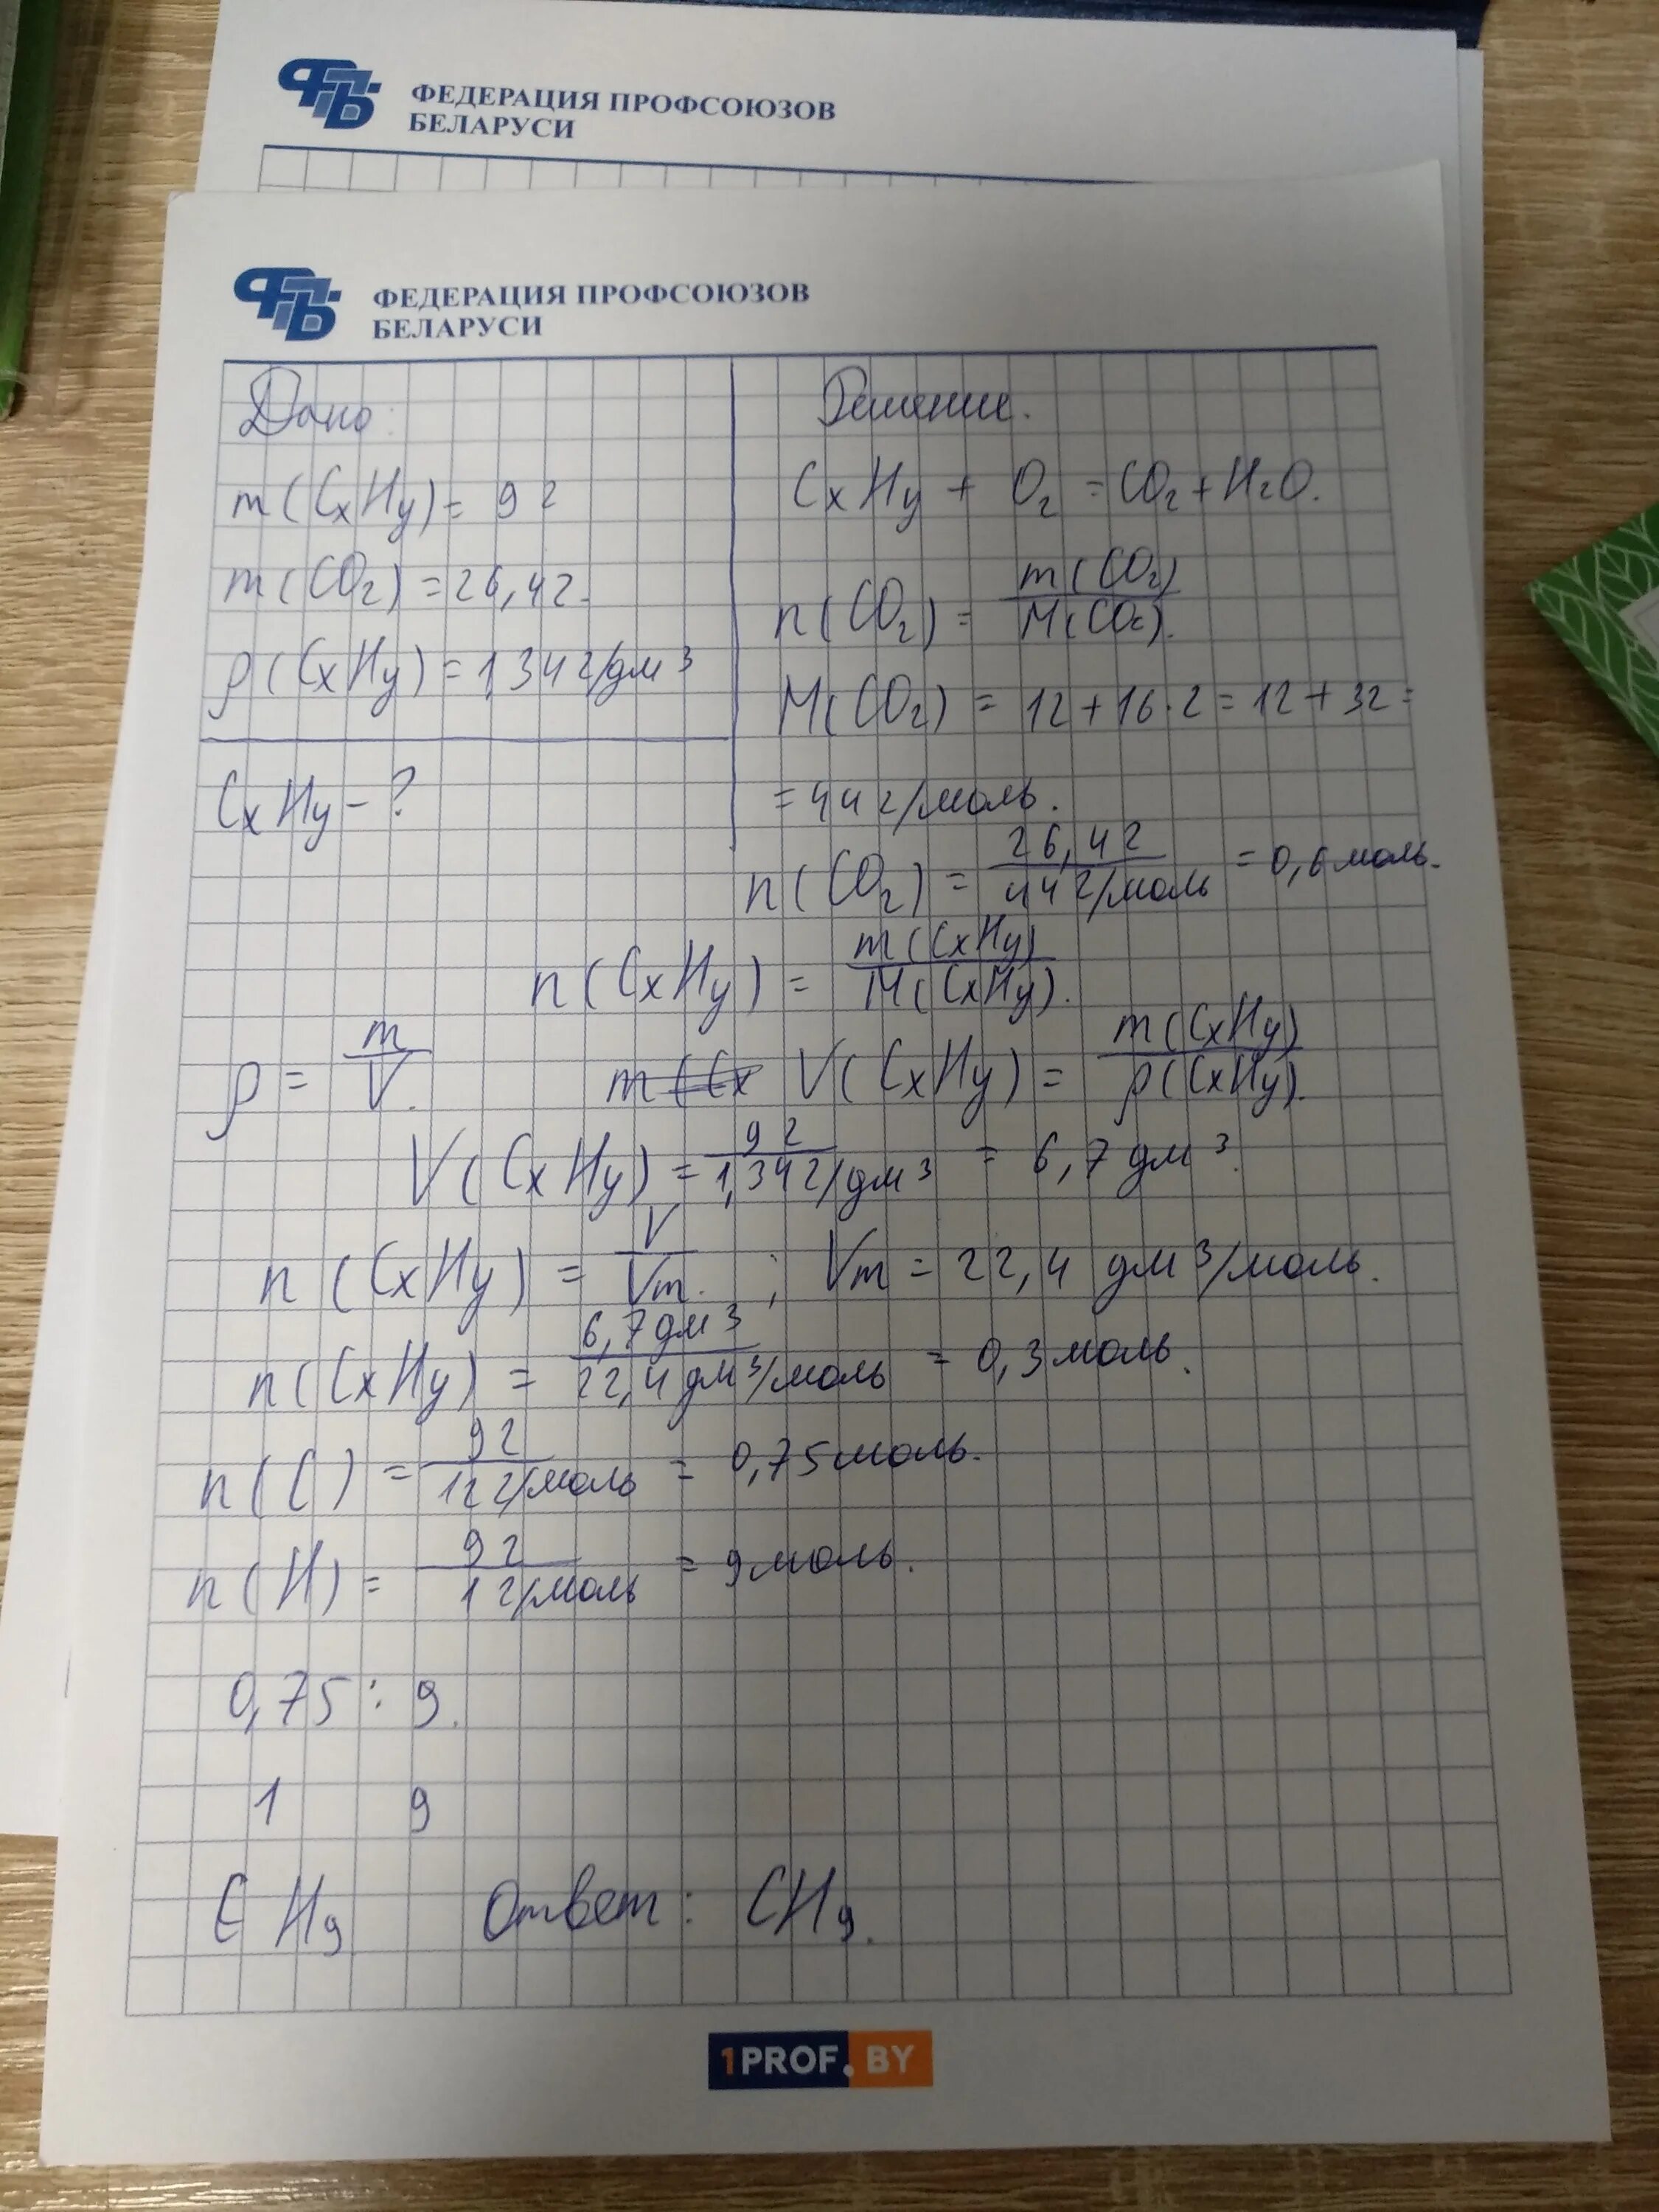 ФПБ ФЕДЕРАЦИЯ ПРОФСОЮЗОВ
БЕЛАРУСИ
ФПБ ФЕДЕРАЦИЯ ПРОФСОЮЗОВ
БЕЛАРУСИ
Дано:
m(CxHy) = 9 г
m(CO2) = 26,4 г.
ρ(CxHy) = 1,34 г/дм³
CxHy - ?
Решение.
CxHy + O2 = CO2 + H2O.
n(CO2) = m(CO2)/M(CO2).
M(CO2) = 12 + 16·2 = 12 + 32 =
= 44 г/моль.
n(CO2) = 26,4 г/44 г/моль = 0,6 моль.
n(CxHy) = m(CxHy)/M(CxHy).
ρ = m/V. m(Cx V(CxHy) = m(CxHy)/ρ(CxHy).
V(CxHy) = 9 г/1,34 г/дм³ = 6,7 дм³.
n(CxHy) = V/Vm. ; Vm = 22,4 дм³/моль.
n(CxHy) = 6,7 дм³/22,4 дм³/моль = 0,3 моль.
n(C) = 9 г/12 г/моль = 0,75 моль.
n(H) = 9 г/1 г/моль = 9 моль.
0,75 : 9.
1 9
C H9 Ответ: CH9.
1PROF.BY